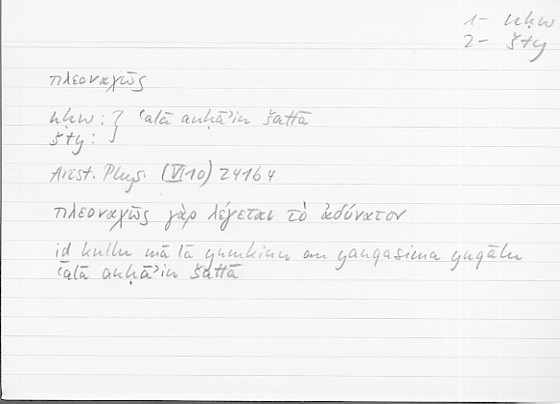 1- nḥw
2- šty
πλεοναχῶς
nḥw : } ʿalā anḥāʾin šattā
šty : }
Arist. Phys. (VI 10) 241b4
πλεοναχῶς γὰρ λέγεται τὸ ἀδύνατον
id kullu mā lā yumkinu an yanqasima yuqālu
ʿalā anḥāʾin šattā